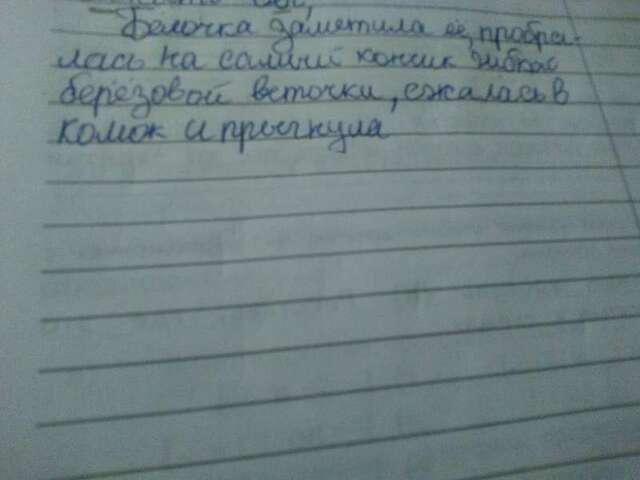 Белочка заметила её, пробра-
лась на самый кончик гибкой
берёзовой веточки, сжалась в
комок и прыгнула